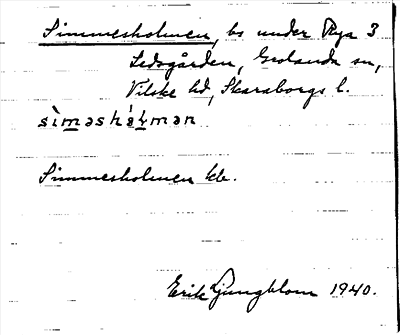 Simmesholmen, bs under Rya 3
Ledsgården, Grolanda sn,
Vilske hd, Skaraborgs l.
sìməshå̀lmən
Simmesholmen kb.
Erik Ljungblom 1940.